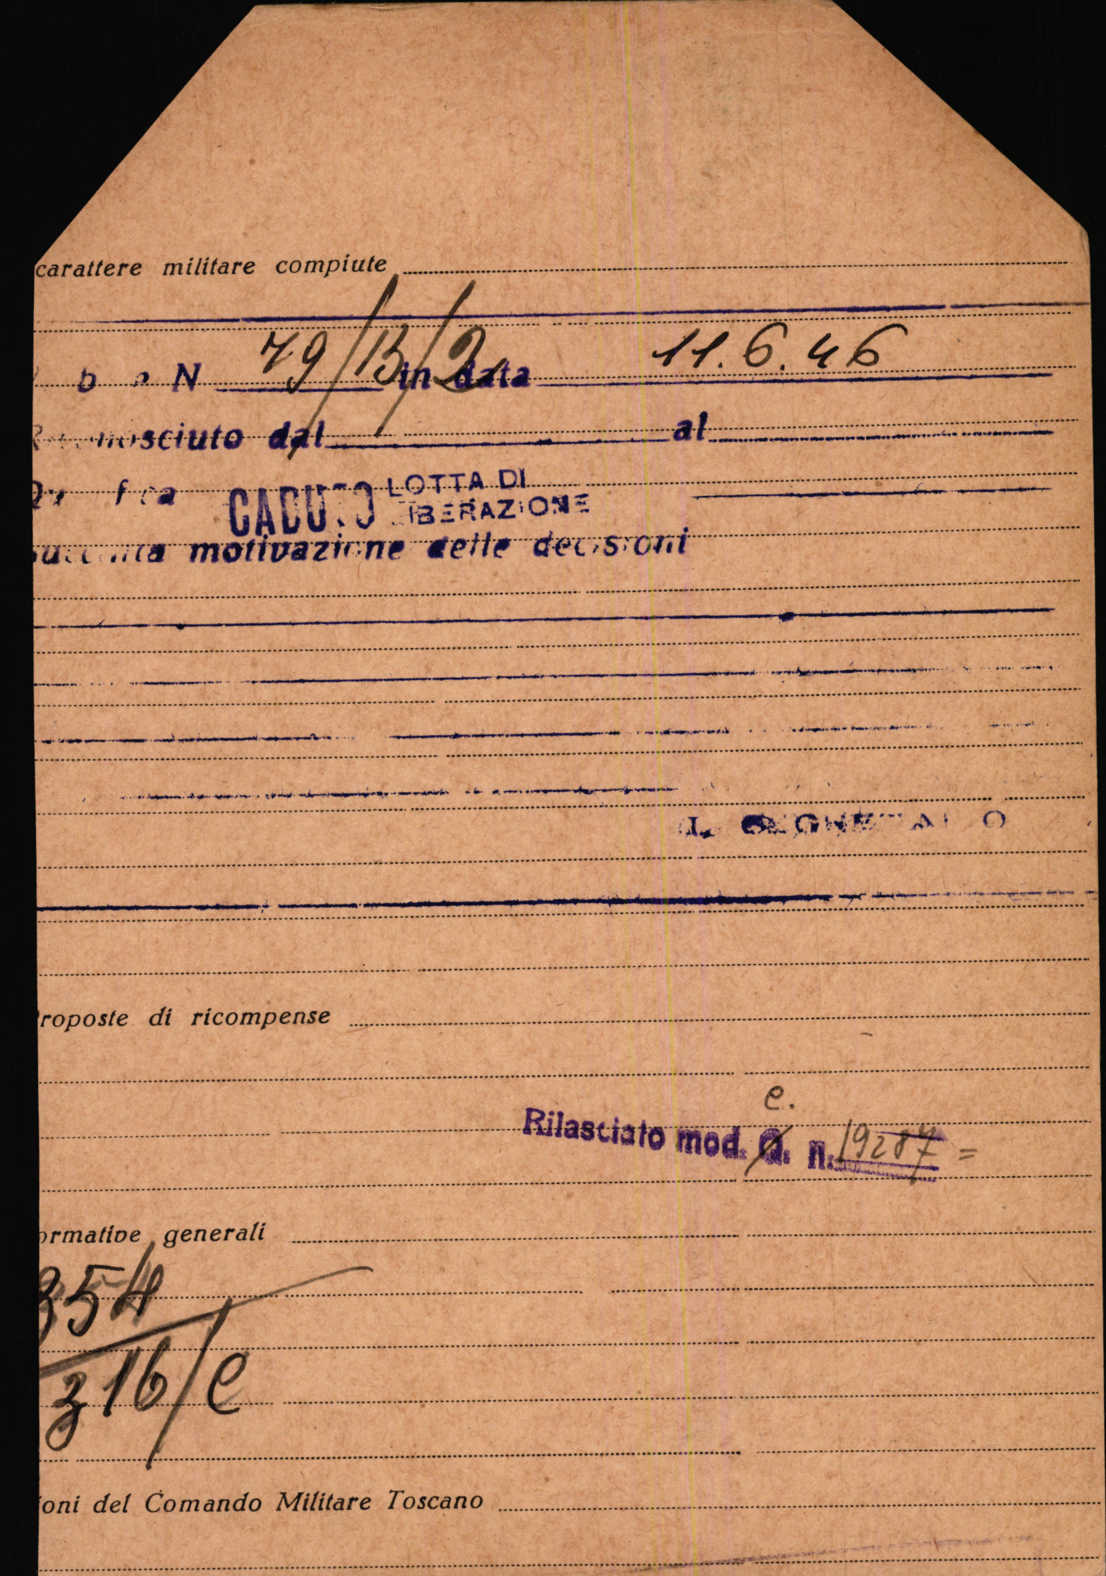 carattere militare compiute
N 79/B/2 in data 11.6.46
Riconosciuto dal al
CADUTO LOTTA DI
LIBERAZIONE
motivazione delle decisioni
IL SEGRETARIO
Proposte di ricompense
e.
Rilasciato mod. n. 19287 =
ormative generali
354
316/e
ioni del Comando Militare Toscano